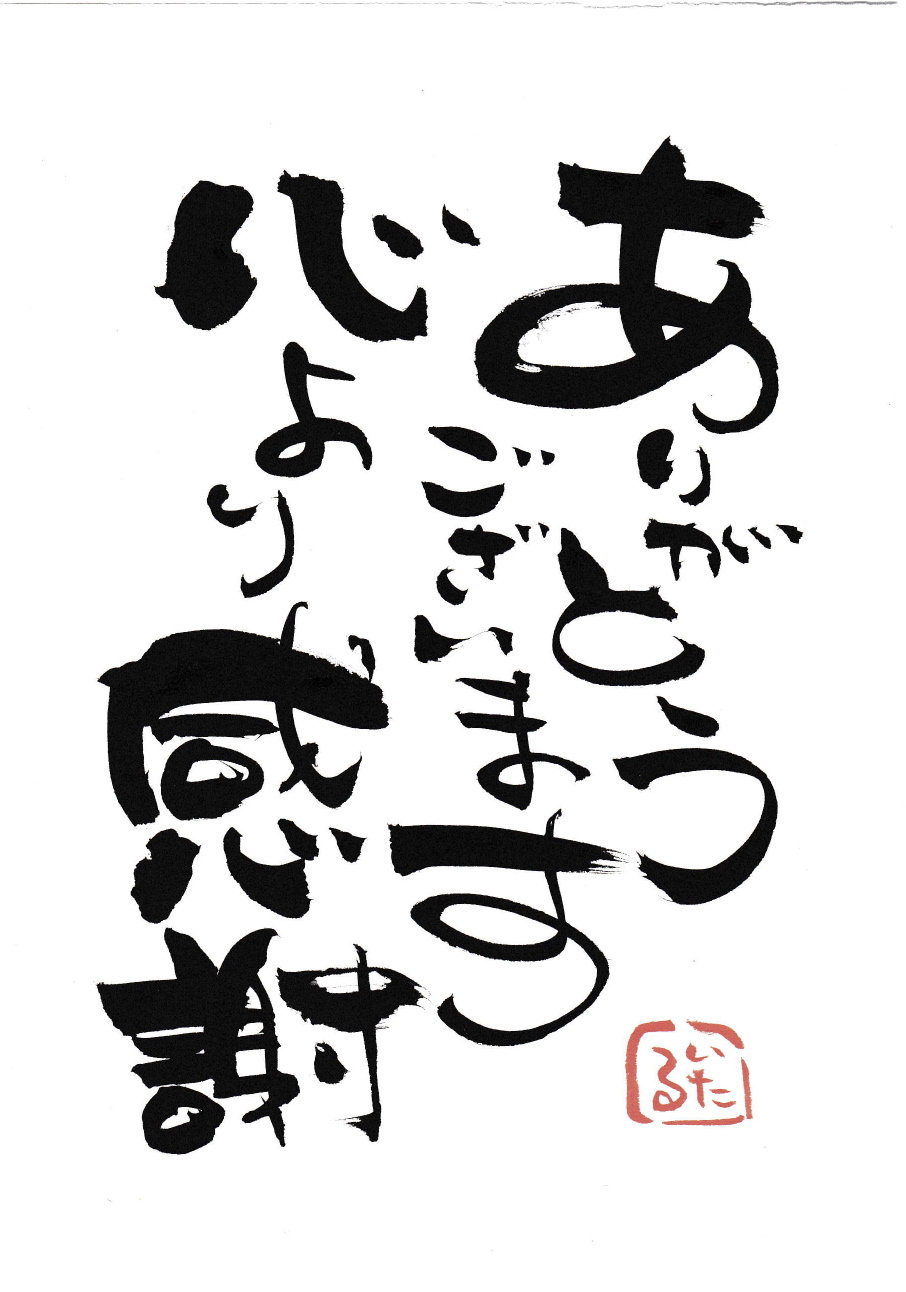 ありがとう
ございます
心より感謝
いたる